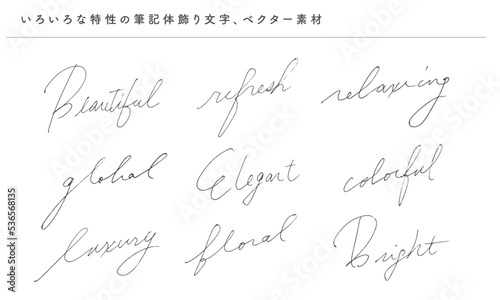 いろいろな特性の筆記体飾り文字、ベクター素材
Beautiful refresh relaxing
global Elegant colorful
luxury floral Bright
Adobe Stock | #536568135
Adobe Stock